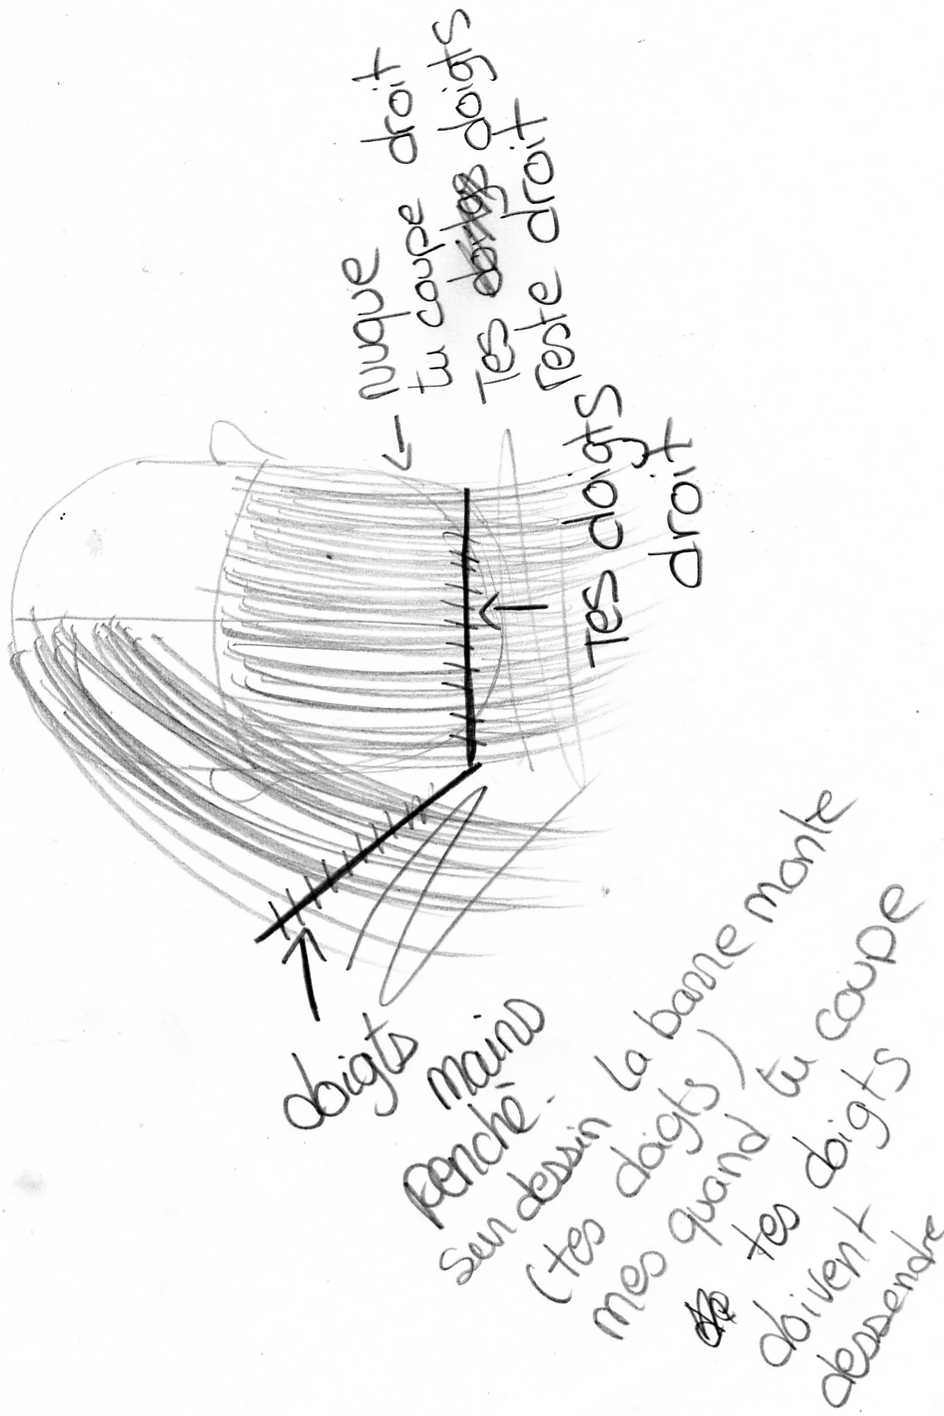 Nuque droit
tu coupe droit
Tes doigts
reste droit
Tes doigts
droit
doigts
mains
penché.
sur dessin la barre monte
(tes doigts)
mes quand tu coupe
tes doigts
doivent
dessendre